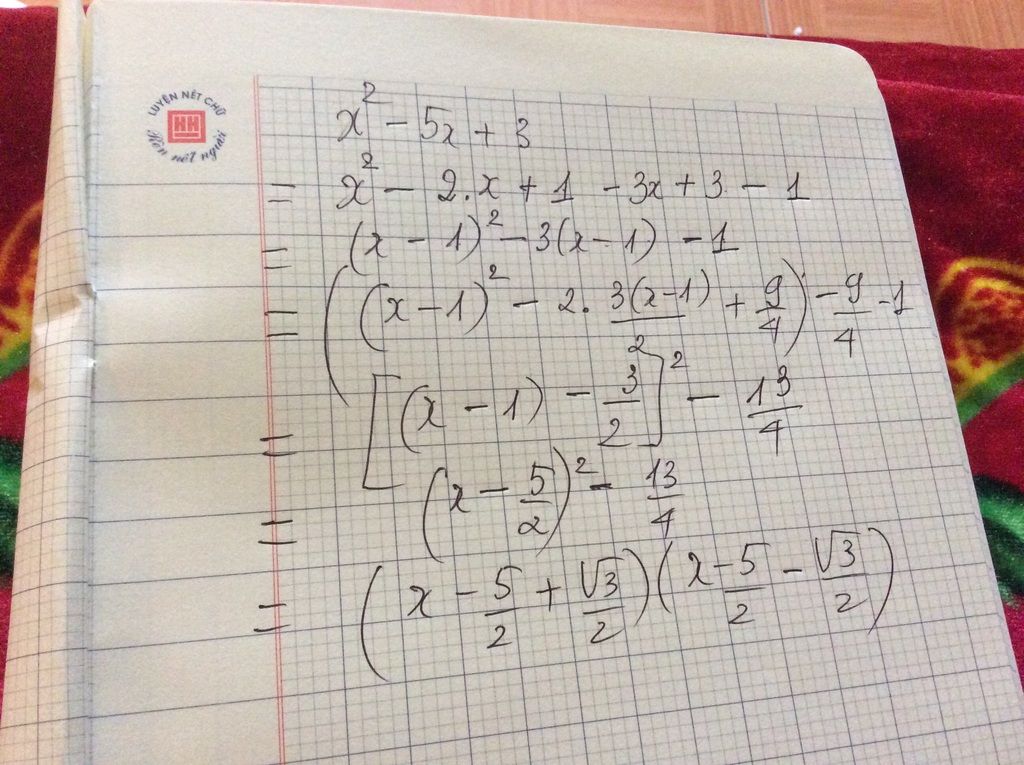 LUYỆN NÉT CHỮ
HH
Rèn nết người
x² - 5x + 3
= x² - 2.x + 1 - 3x + 3 - 1
= (x - 1)² - 3(x - 1) - 1
= ((x - 1)² - 2. 3(x-1)/2 + 9/4) - 9/4 - 1
= [(x - 1) - 3/2]² - 13/4
= (x - 5/2)² - 13/4
= (x - 5/2 + √3/2)(x - 5/2 - √3/2)